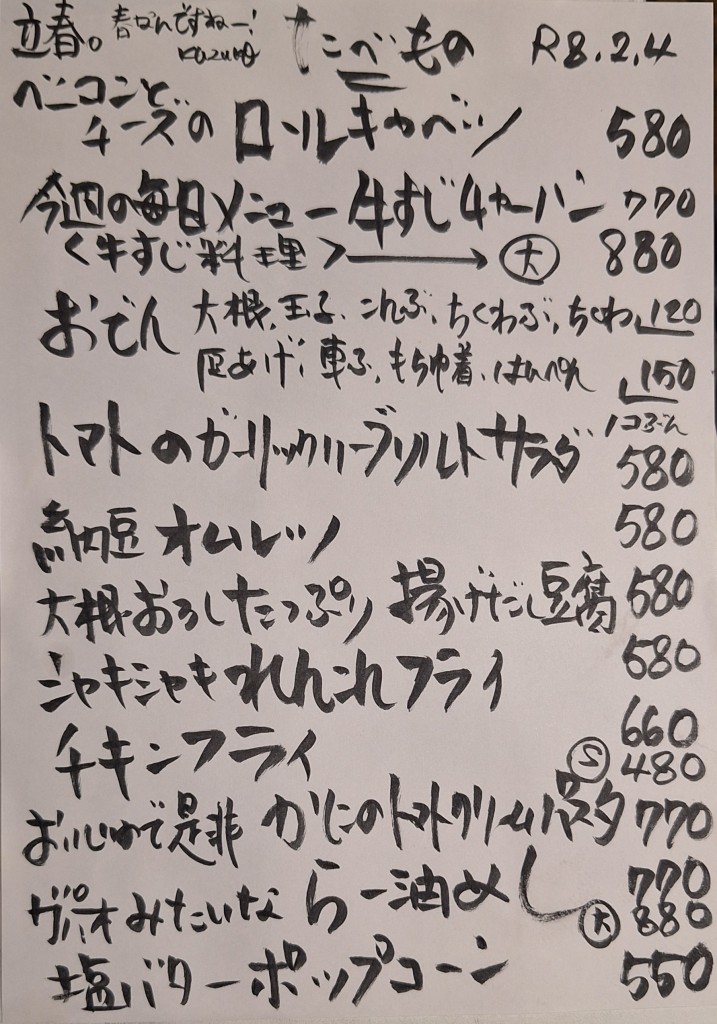 立春。春なんですねー! たべもの R8.2.4
ベーコンと
チーズの ロールキャベツ 580
今週の毎日メニュー 牛すじ 770
<牛すじ料理>→大 880
おでん 大根、玉子、こんぶ、ちくわぶ、ちくわ 120
厚あげ、車ふ、もち巾着、はんぺん 150
トマトのガーリックハーブソルトサラダ 580
納豆オムレツ 580
大根おろしたっぷり 揚げだし豆腐 580
シャキシャキれんこんフライ 580
チキンフライ 660
S 480
おいしいので是非 かにのトマトクリームパスタ 770
ガパオみたいな らー油めし 770
大 880
塩バターポップコーン 550